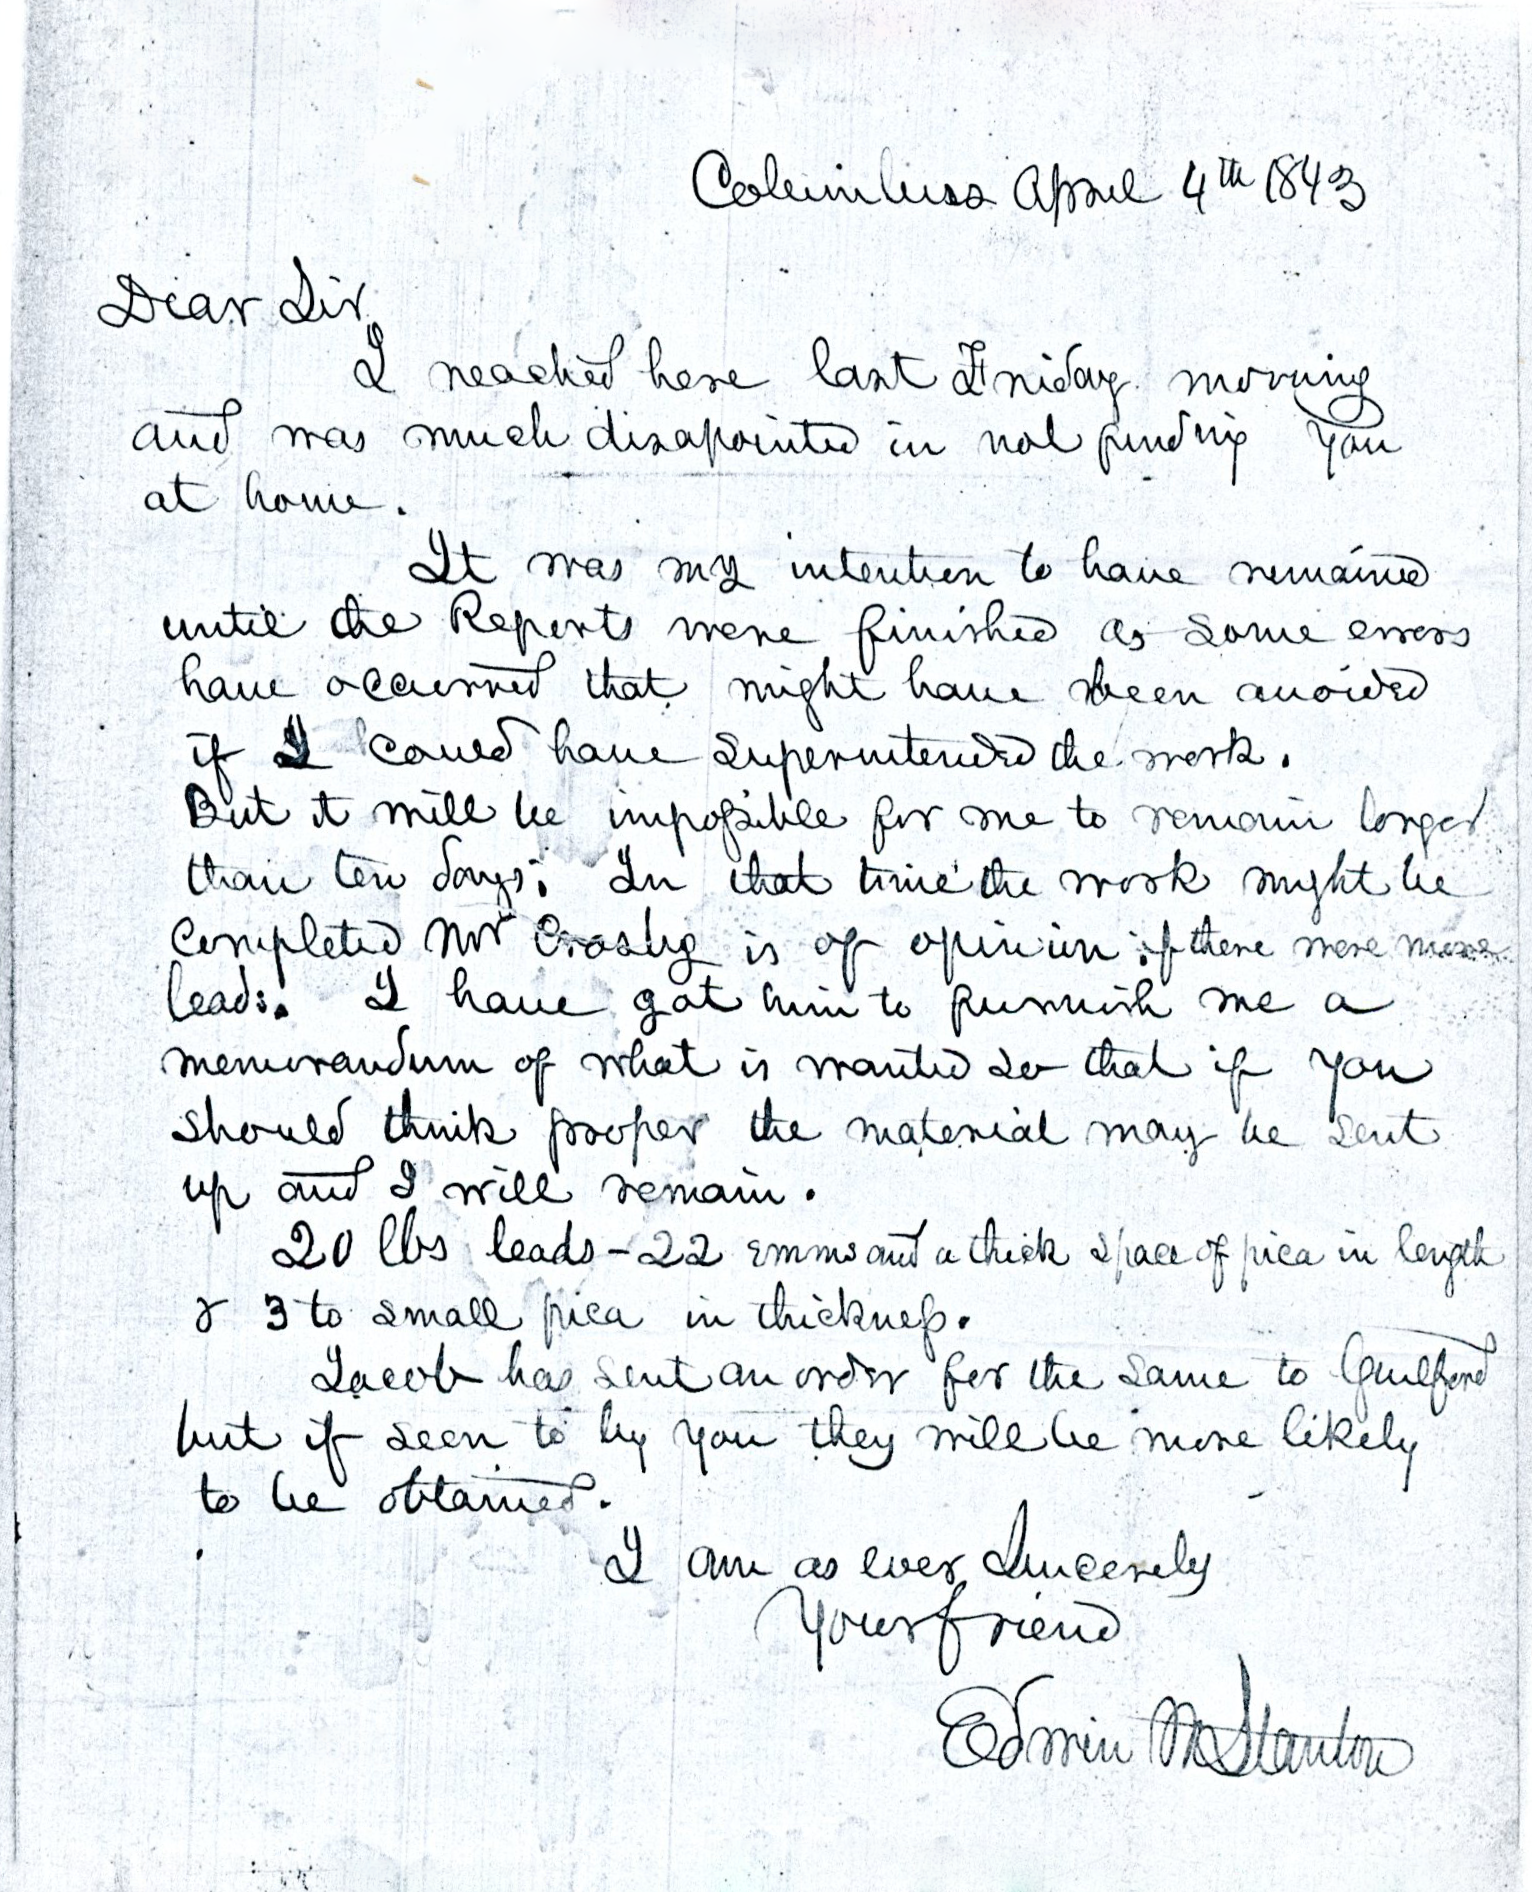 Columbus April 4th 1843
Dear Sir
I reached here last Friday morning
and was much disapointed in not finding you
at home.
It was my intention to have remained
until the Reports were finished as some errors
have occurred that might have been avoided
if I could have superintended the work.
But it will be impossible for me to remain longer
than ten days; In that time the work might be
completed Mr Crosby is of opinion if there were more
leads. I have got him to furnish me a
memorandum of what is wanted so that if you
should think proper the material may be sent
up and I will remain.
20 lbs leads - 22 emms and a thick space of pica in length
& 3 to small pica in thickness.
Jacob has sent an order for the same to Guilford
but if seen to by you they will be more likely
to be obtained.
I am as ever Sincerely
Your friend
Edwin M Stanton